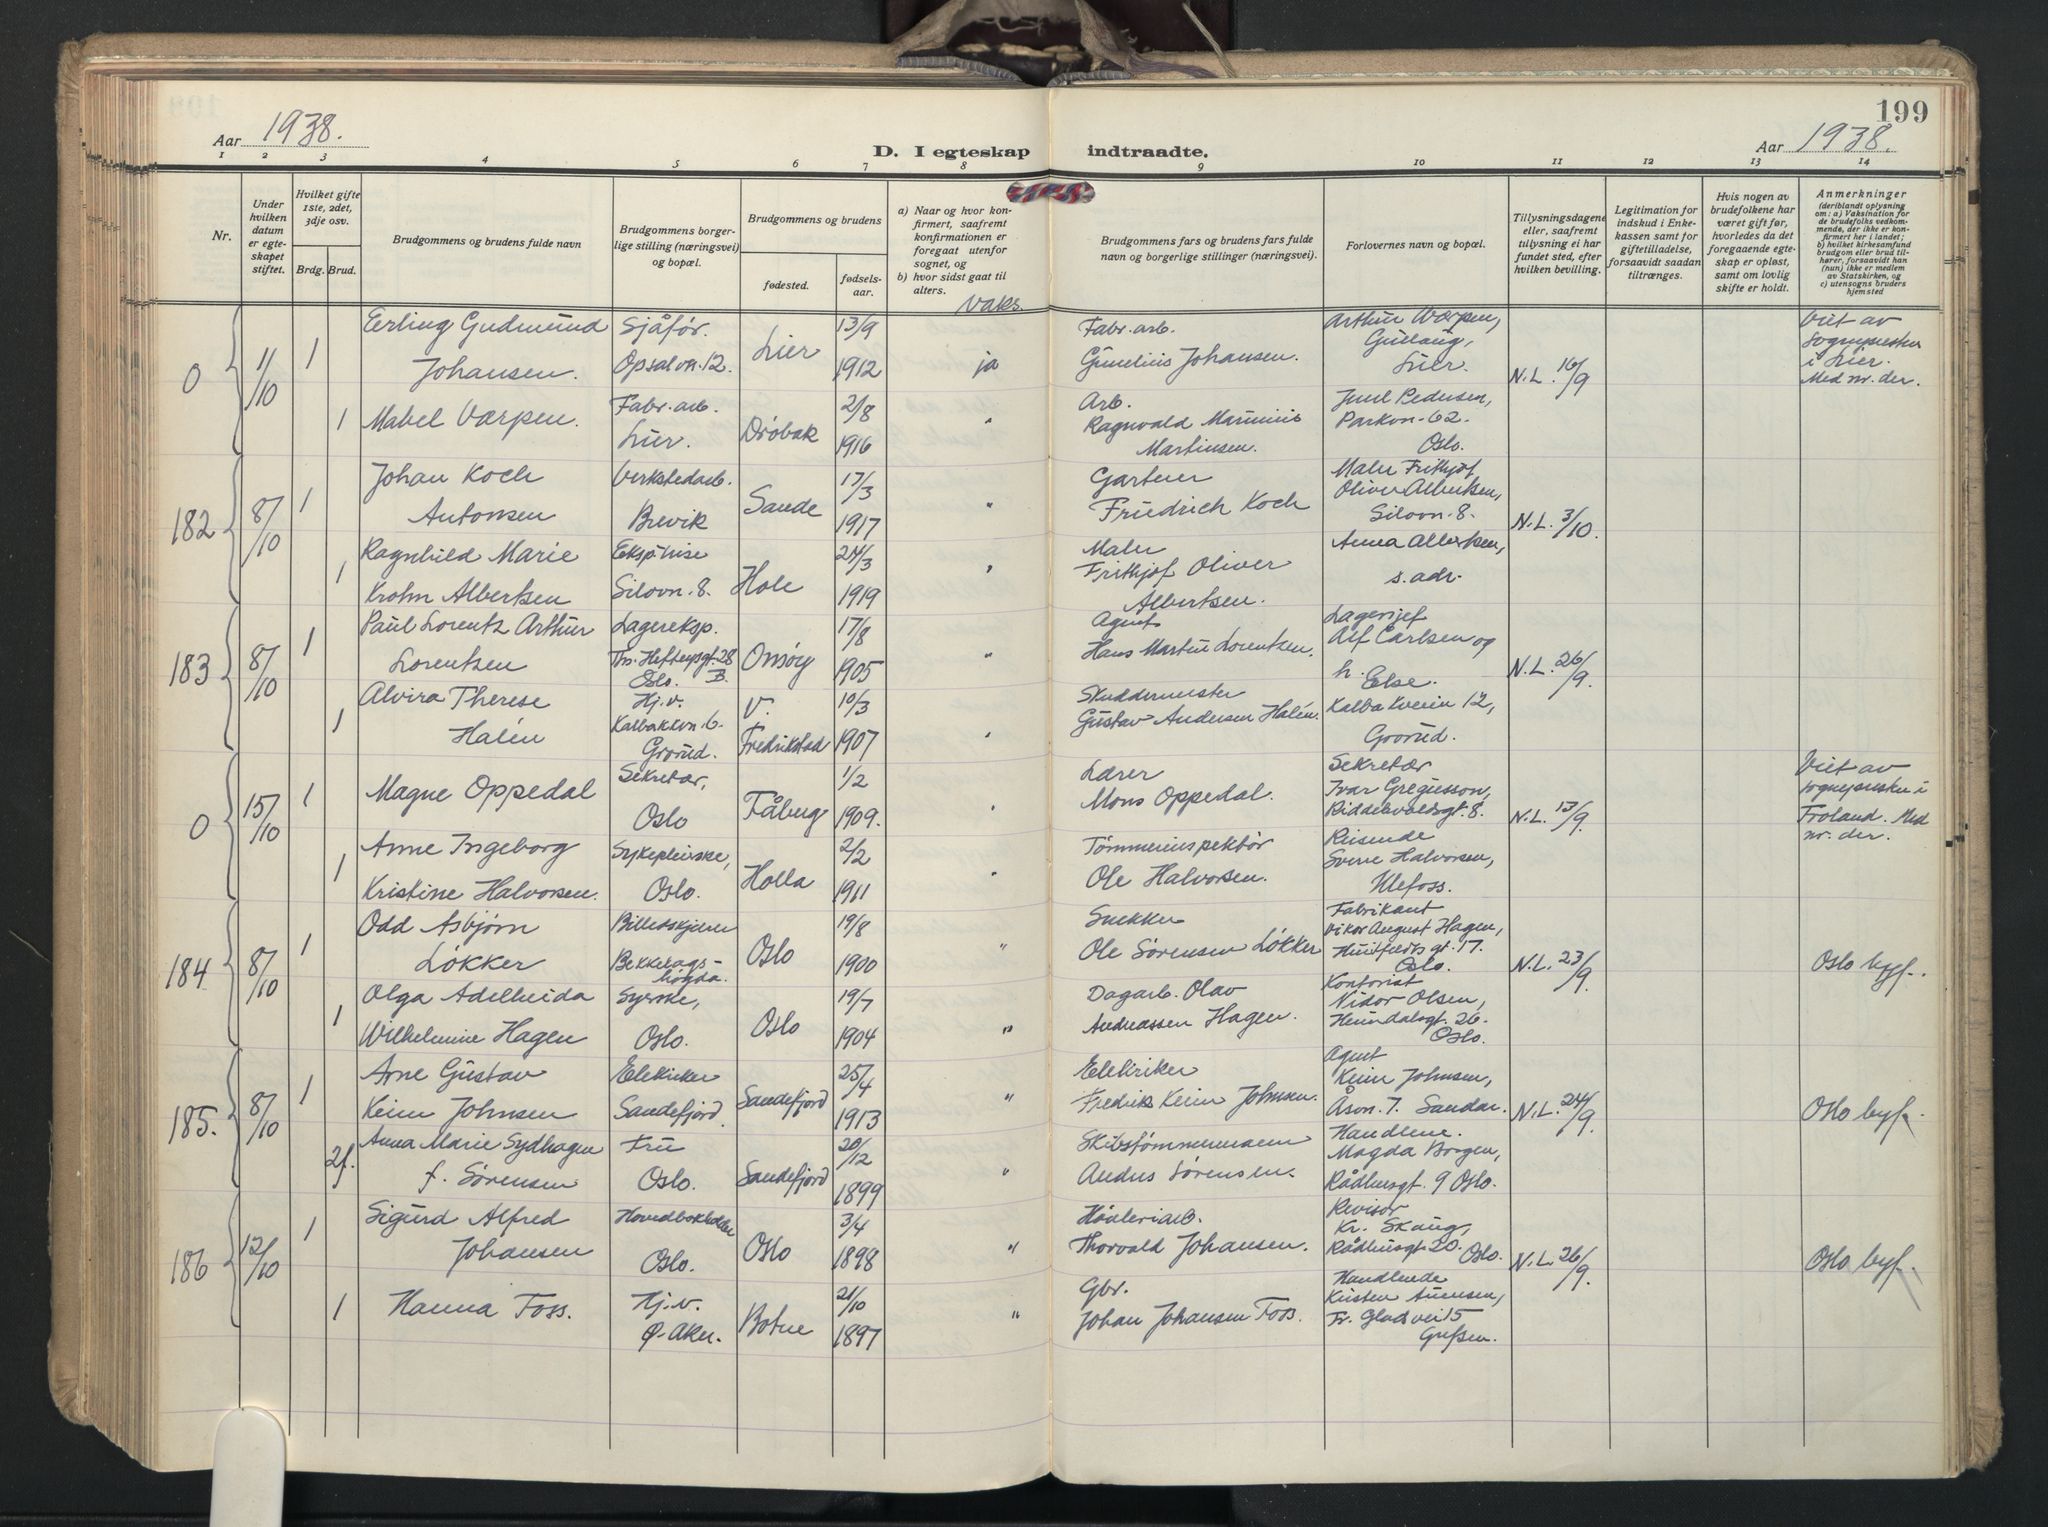 199
Aar 1938.
D. I egteskap indtraadte.
Aar 1938.
1 2 3 4 5 6 7 8 9 10 11 12 13 14
Nr.
Under hvilken datum er egteskapet stiftet.
Hvilket gifte 1ste, 2det, 3dje osv.
Brdg. Brud.
Brudgommens og brudens fulde navn
Brudgommens borgerlige stilling (næringsvei) og bopæl.
Brudgommens og brudens
fødested.
fødselsaar.
a) Naar og hvor konfirmert, saafremt konfirmationen er foregaat utenfor sognet, og
b) hvor sidst gaat til alters.
Vaks.
Brudgommens fars og brudens fars fulde navn og borgerlige stillinger (næringsvei).
Forlovernes navn og bopæl.
Tillysningsdagene eller, saafremt tillysning ei har fundet sted, efter hvilken bevilling.
Legitimation for indskud i Enkekassen samt for giftetilladelse, forsaavidt saadan tiltrænges.
Hvis nogen av brudefolkene har været gift før, hvorledes da det foregaaende egteskap er opløst, samt om lovlig skifte er holdt.
Anmerkninger
(deriblandt oplysning om: a) Vaksination for de brudefolks vedkommende, der ikke er konfirmert her i landet; b) hvilket kirkesamfund brudgom eller brud tilhører, forsaavidt han (hun) ikke er medlem av Statskirken, og c) utensogns bruders hjemsted
0 11/10 1 Erling Gudmund Johansen. Sjåfør. Opsalvn. 12. Lier 13/9 1912 ja Fabr. arb. Johansen. Arthur Værpen, Gullaug, Lier. N.L. 16/9 Viet av Sognepresten i Lier. Med nr. der.
1 Mabel Værpen. Fabr. arb. Lier. Drøbak 2/8 1916 " Arb. Ragnvald Marinius Martinsen. Juul Pedersen, Parkvn. 62. Oslo.
182 8/10 1 Johan Koch Antonsen Verkstedarb. Brevik Sande 17/3 1917 " Gartner Friedrich Koch Maler Frithjof Oliver Albertsen, Silovn. 8. N.L. 3/10.
1 Ragnhild Marie Krohn Albertsen Silovn. 8. Hole 24/3 1919 " Maler Frithjof Oliver Albertsen. Anna Albertsen, s. adr.
183 8/10 1 Paul Lorentz Arthur Lorentzen Lagereksp. Ths. Heftyesgt. 28 B. Oslo. Onsøy 17/8 1905 " Agent Hans Martin Lorentzen. Lagersjef Alf Carlsen og h. Else. N.L. 26/9.
1 Alvira Therese Halén Hj.v. Kalbakkvn. 6. Grorud. V. Fredrikstad 10/3 1907 " Skuddermester Gustav Andersen Halén. Kalbakkveien 12, Grorud.
0 15/10 1 Magne Oppedal Sekretær, Oslo Fåberg 1/2 1909. " Lærer Mons Oppedal. Sekretær Ivar Gregusson, Riddervoldsgt. 8. N.L. 13/9. Viet av sognepresten i Froland. Med nr. der.
1 Anne Ingeborg Kristine Halvorsen. Sykepleierske, Oslo. Holla 2/2 1911 " Tømmerinspektør Ole Halvorsen. Reisende Sverre Halvorsen, Ulefoss.
184 8/10 1 Odd Asbjørn Løkker Billedskjærer Bekkelagshøgda. Oslo 19/8 1900 " Snekker Ole Sørensen Løkker Fabrikant Viktor August Hagen, Huitfeldts gt. 17. Oslo. N.L. 23/9. Oslo byf.
1 Olga Adelheida Wilhelmine Hagen Syerske, Oslo. Oslo 19/7 1904 " Dagarb. Olav Andreassen Hagen. Kontorist Nidor Olsen, Heimdalsgt. 26. Oslo.
185. 8/10 1 Arne Gustav Keim Johnsen Elektriker Sandefjord. Sandefjord 25/4 1913 " Elektriker Fredrik Keim Johnsen. Agent Keim Johnsen, Åsvn. 7. Sandar. N.L. 24/9. Oslo byf.
2f. Anna Marie Sydhagen f. Sørensen Fru Oslo. Sandefjord 20/12 1899 " Skibstømmermann Anders Sørensen. Handlene. Magda Borgen, Rådhusgt. 9 Oslo.
186 12/10 1 Sigurd Alfred Johansen Hovedbokholder Oslo. Oslo 3/4 1898 " Høvleriarb. Thorvald Johansen. Revisor Kr. Skaug, Rådhusgt. 20. Oslo. N.L. 26/9. Oslo byf.
1 Hanna Foss. Hj.v. Ø. Aker. Botne 21/10 1897 " Gbr. Johan Johansen Foss. Handlende Kristen Aunesen, Fr. Gladsvei 15 Grefsen.